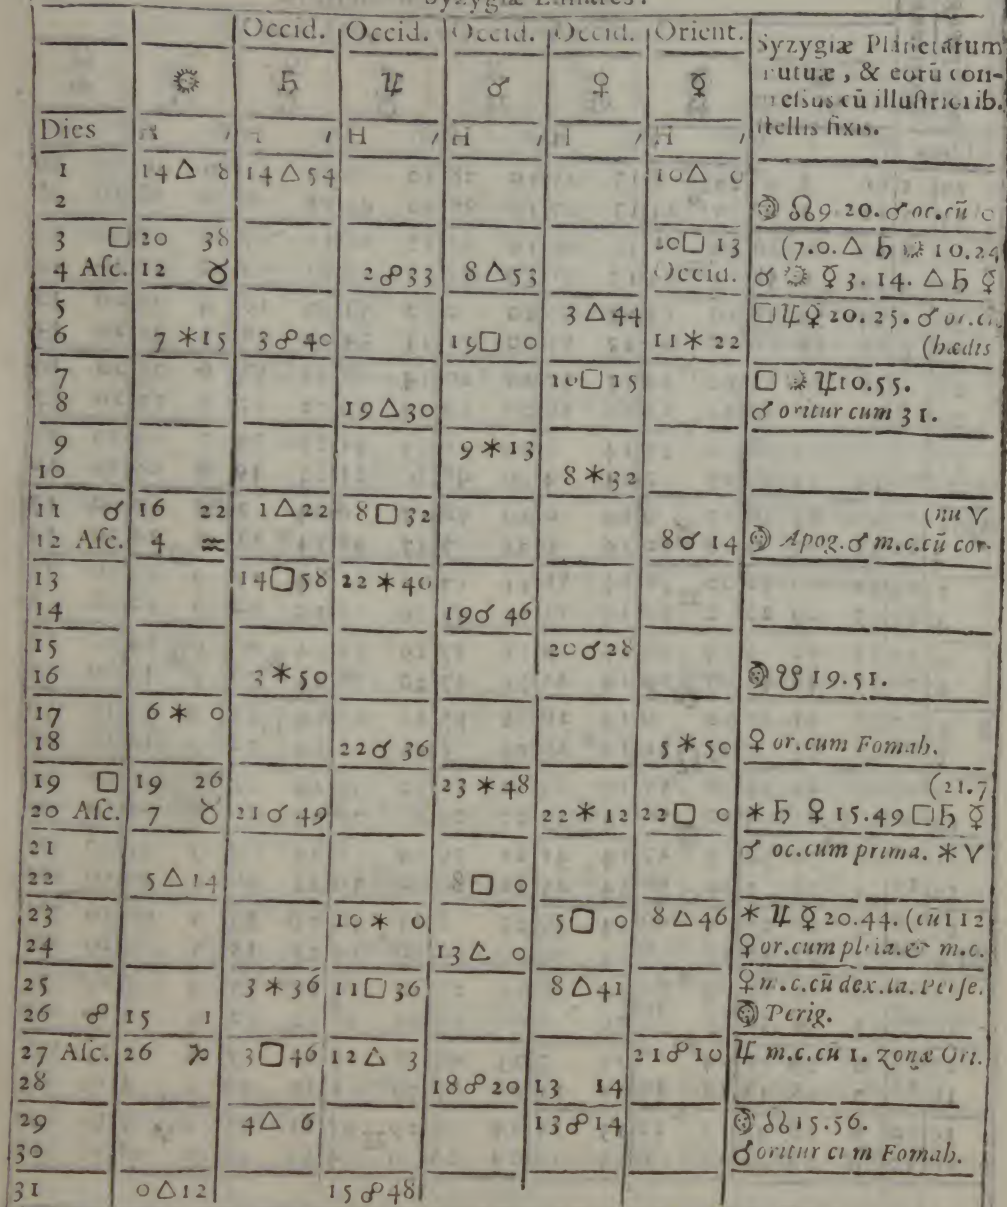 Occid. Occid. Occid. Occid. Orient. Syzygiæ Planetarum
☉ ♄ ♃ ♂ ♀ ☿ mutuæ, & eorū con-
cū illustriorib.
Dies H ′ H ′ H ′ H ′ H ′ stellis fixis.
1 14 △ 8 14 △ 54 10 △ 0
2 ☽ ☊ 9 20. ♂ oc. cū
3 □ 20 38 20 □ 13 (7.0. △ ♄ ☉ 10.24
4 Asc. 12 ♉ 2 ☍ 33 8 △ 53 Occid. ☌ ☉ ☿ 3. 14. △ ♄ ☿
5 3 △ 44 □ ♃ ♀ 20. 25. ♂ or. cū
6 7 ✶ 15 3 ☍ 40 19 □ 0 11 ✶ 22 (hædis
7 10 □ 15 □ ☉ ♃ 10.55.
8 19 △ 30 ♂ oritur cum 31.
9 9 ✶ 13
10 8 ✶ 32
11 ☌ 16 22 1 △ 22 8 □ 32 (nu ♈
12 Asc. 4 ♒ 8 ☌ 14 ☽ Apog. ♂ m.c. cū cor-
13 14 □ 58 22 ✶ 40
14 19 ☌ 46
15 20 ☌ 28
16 3 ✶ 50 ☽ ☋ 19.51.
17 6 ✶ 0
18 22 ☌ 36 5 ✶ 50 ♀ or. cum Fomah.
19 □ 19 26 23 ✶ 48 (21.7
20 Asc. 7 ♉ 21 ☌ 49 22 ✶ 12 22 □ 0 ✶ ♄ ♀ 15.49 □ ♄ ☿
21 ♂ oc. cum prima. ✶ ♈
22 5 △ 14 8 □ 0
23 10 ✶ 0 5 □ 0 8 △ 46 ✶ ♃ ☿ 20.44. (cū 112
24 13 △ 0 ♀ or. cum pleia. & m.c.
25 3 ✶ 36 11 □ 36 8 △ 41 ♀ m.c. cū dex. la. Perse.
26 ☍ 15 1 ☽ Perig.
27 Asc. 26 ♑ 3 □ 46 12 △ 3 21 ☍ 10 ♃ m.c. cū 1. zonæ Ori.
28 18 ☍ 20 13 14
29 4 △ 6 13 ☍ 14 ☽ ☊ 15.56.
30 ♂ oritur cum Fomah.
31 0 △ 12 15 ☍ 48